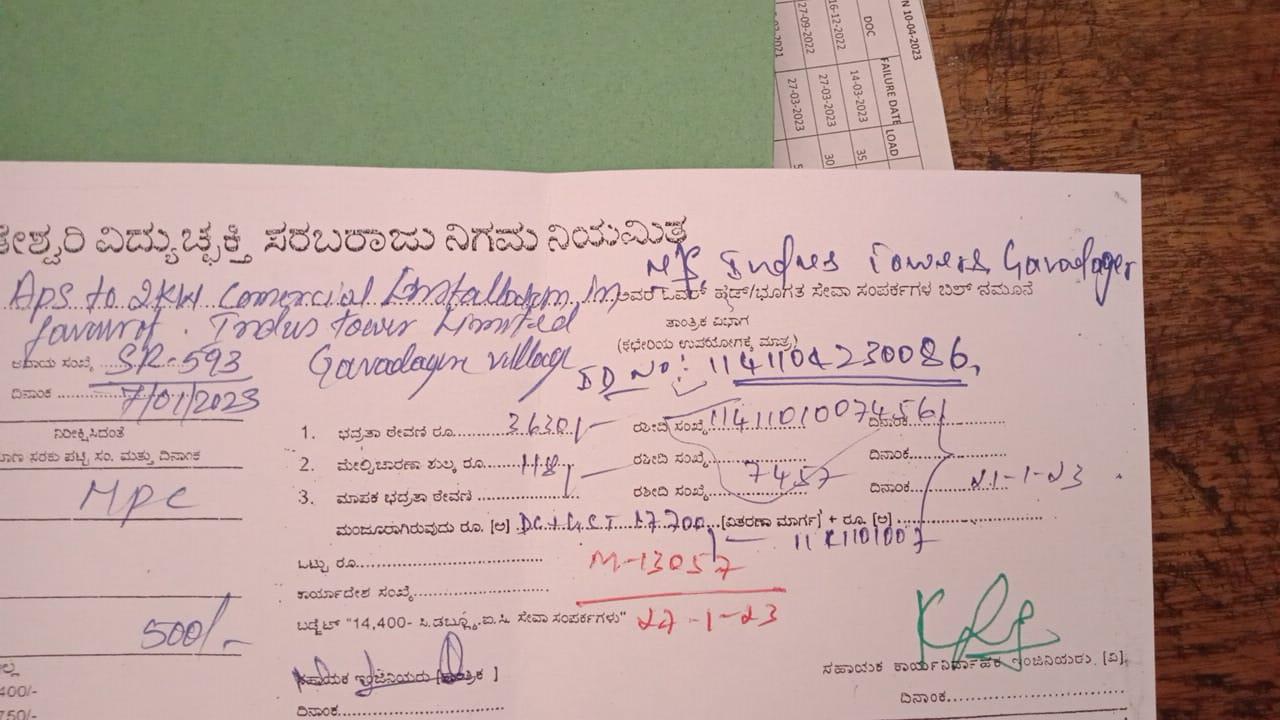 N 10-04-2023
DOC FAILURE DATE LOAD
16-12-2022 14-03-2023 35
27-09-2022 27-03-2023 30
27-03-2023
ಶ್ವರಿ ವಿದ್ಯುಚ್ಛಕ್ತಿ ಸರಬರಾಜು ನಿಗಮ ನಿಯಮಿತ
M/s Indus Towers Gavadager
Aps to 2KW Comercial Installation In
ಅವರ ಓವರ್ ಹೆಡ್/ಭೂಗತ ಸೇವಾ ಸಂಪರ್ಕಗಳ ಬಿಲ್ ನಮೂನೆ
favour of . Indus tower Limited
ತಾಂತ್ರಿಕ ವಿಭಾಗ
(ಕಛೇರಿಯ ಉಪಯೋಗಕ್ಕೆ ಮಾತ್ರ)
ಸಂಖ್ಯೆ SR-593 Gavadagere village
ID No: 1141104230086
ದಿನಾಂಕ 7/01/2023
ನಿರೀಕ್ಷಿಸಿದಂತೆ
ಸರಕು ಪಟ್ಟಿ ಸಂ. ಮತ್ತು ದಿನಾಂಕ
1. ಭದ್ರತಾ ಠೇವಣಿ ರೂ. 3630/- ರಶೀದಿ ಸಂಖ್ಯೆ ದಿನಾಂಕ
2. ಮೇಲ್ವಿಚಾರಣಾ ಶುಲ್ಕ ರೂ. 118/- ರಶೀದಿ ಸಂಖ್ಯೆ ದಿನಾಂಕ
3. ಮಾಪಕ ಭದ್ರತಾ ಠೇವಣಿ ರಶೀದಿ ಸಂಖ್ಯೆ 7457 ದಿನಾಂಕ 21-1-23
ಮಂಜೂರಾಗಿರುವುದು ರೂ. [ಅ] [ವಿತರಣಾ ಮಾರ್ಗ] + ರೂ. [ಅ]
ಒಟ್ಟು ರೂ.
M-13057
ಕಾರ್ಯಾದೇಶ ಸಂಖ್ಯೆ
ಬಡ್ಜೆಟ್ "14,400- ಸಿ.ಡಬ್ಲ್ಯೂ.ಐ.ಸಿ ಸೇವಾ ಸಂಪರ್ಕಗಳು" 27-1-23
500/-
ಸಹಾಯಕ ಇಂಜಿನಿಯರು ]
ಸಹಾಯಕ ಕಾರ್ಯನಿರ್ವಾಹಕ ಇಂಜಿನಿಯರು. [ವಿ]
400/-
ದಿನಾಂಕ
ದಿನಾಂಕ
750/-